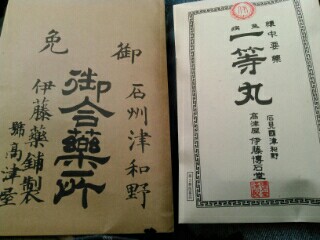 御免
石州津和野
御合薬所
伊藤薬舗製
高津屋
懐中要薬
一等丸
石見国津和野
高津屋 伊藤博石堂